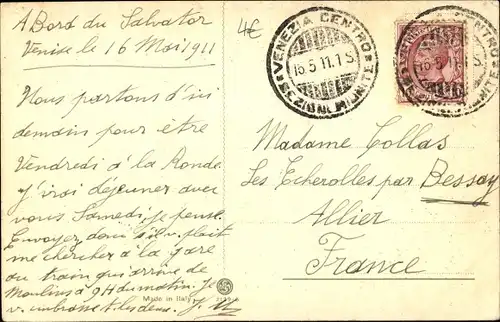 A Bord du Salvator
Venise le 16 Mai 1911
Nous partons d'ici
demain pour être
Vendredi à la Ronde
J'irai déjeuner avec
vous Samedi, je pense.
Envoyez donc s'il v. plait
me chercher à la gare
au train qui arrive de
Moulins à 9H du matin. Je
v. embrasse
4€
VENEZIA CENTRO
16 5 11. 1 S
SEZIONI RIUNITE
Madame Collas
Les Echerolles par Bessay
Allier
France
Made in Italy